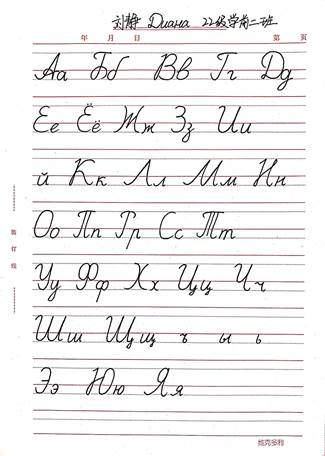 刘静 Диана 22级学前二班
年 月 日 第 页
Аа Бб Вв Гг Дд
Ее Ёё Жж Зз Ии
й Кк Лл Мм Нн
Оо Пп Рр Сс Тт
装订线
Уу Фф Хх Цц Чч
Шш Щщ ъ ы ь
Ээ Юю Яя
维克多利